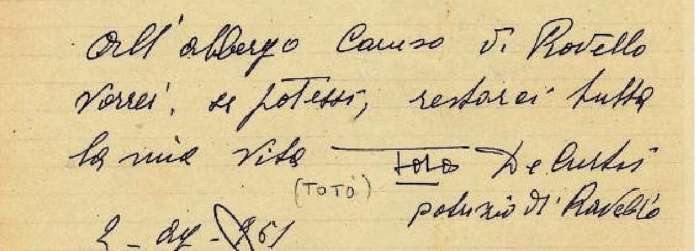 All'albergo Caruso di Ravello
vorrei, se potessi, restarci tutta
la mia vita Totò De Curtis
(TOTÒ) patrizio di Ravello
961